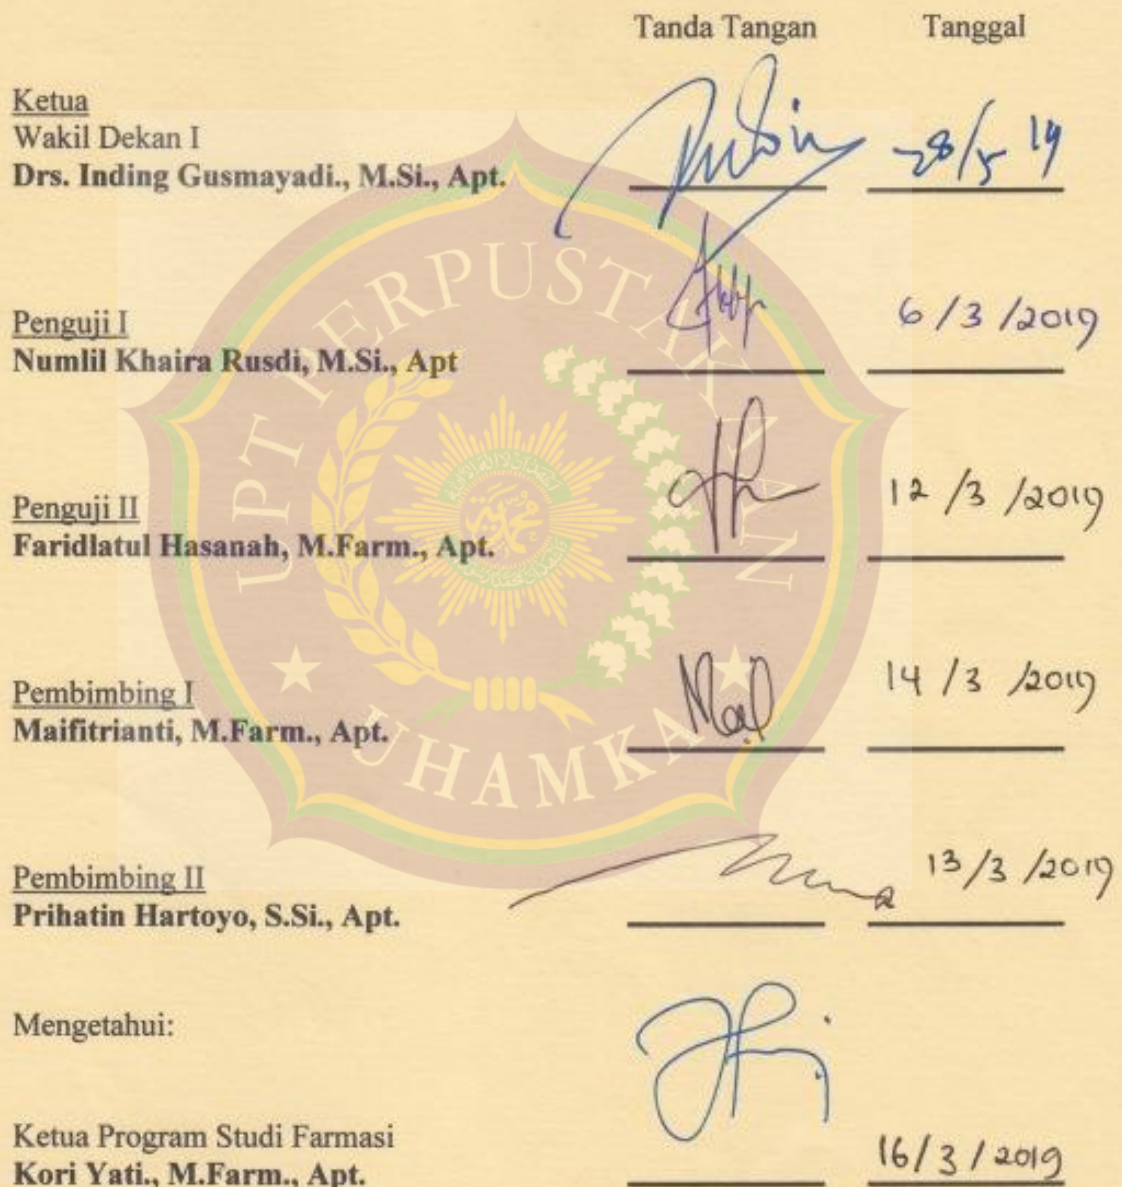 Tanda Tangan Tanggal
Ketua
Wakil Dekan I
Drs. Inding Gusmayadi., M.Si., Apt. 28/5 19
Penguji I
Numlil Khaira Rusdi, M.Si., Apt 6/3/2019
Penguji II
Faridlatul Hasanah, M.Farm., Apt. 12/3/2019
Pembimbing I
Maifitrianti, M.Farm., Apt. 14/3/2019
Pembimbing II
Prihatin Hartoyo, S.Si., Apt. 13/3/2019
Mengetahui:
Ketua Program Studi Farmasi
Kori Yati., M.Farm., Apt. 16/3/2019
UPT PERPUSTAKAAN
UHAMKA